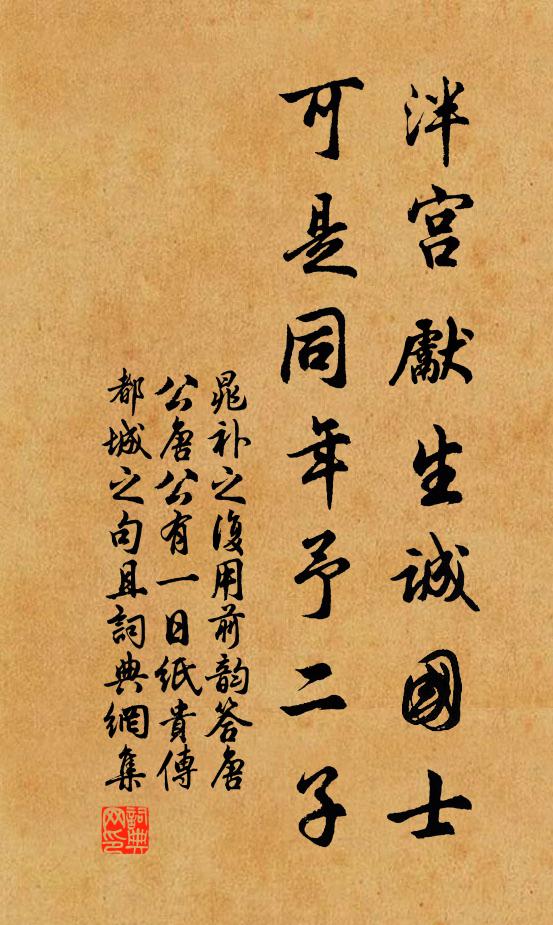 泮宫獻生誠國士
可是同年予二子
晁补之復用前韵答唐
公唐公有一日紙貴傳
都城之句且詞典網集
詞典网印